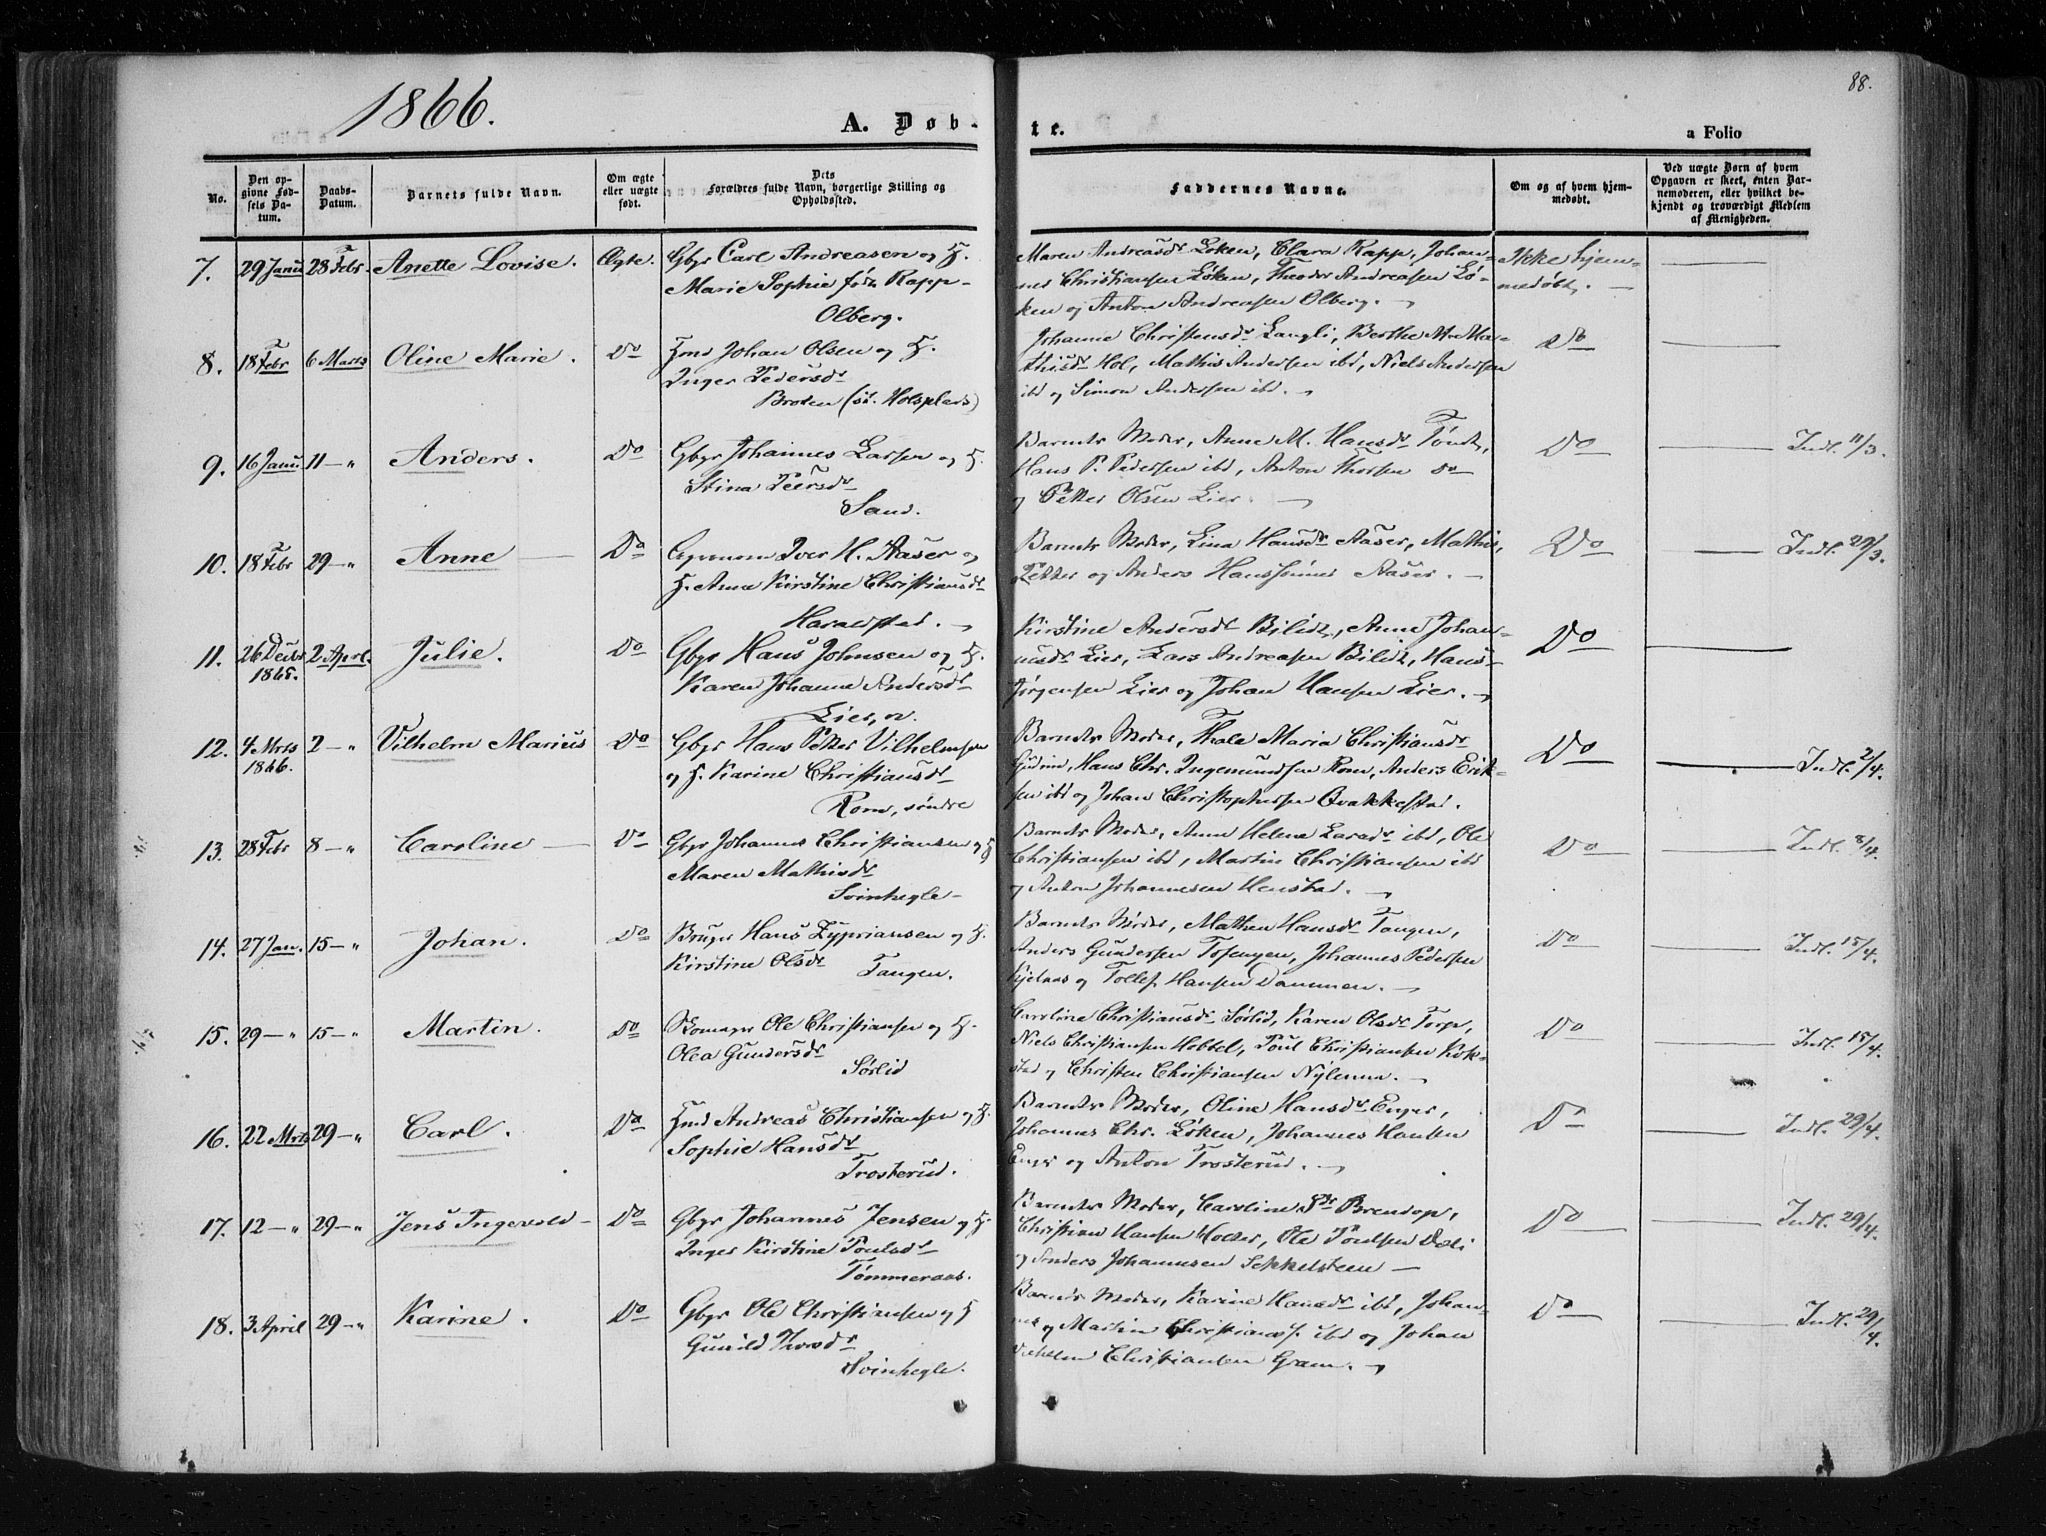 1866.
88.
A. Døb-
te.
a Folio
No.
Den op-
givne Fød-
sels Da-
tum.
Daabs-
Datum.
Barnets fulde Navn.
Om ægte
eller uægte
født.
Dets
Forældres fulde Navn, borgerlige Stilling og
Opholdssted.
Faddernes Navne.
Om og af hvem hjem-
medøbt.
Ved uægte Børn af hvem
Opgaven er skeet, enten Bar-
nemoderen, eller hvilket be-
kjendt og troværdigt Medlem
af Menigheden.
7. 29 Janu 28 Febr. Anette Lovise. Ægte. Gbgr Carl Andreasen og H.
Marie Sophie født Rapp-
Olberg.
Maren Andreasdr Løken, Clara Rapp, Johan-
nes Christiansen Løken, Theodor Andreasen Lø-
ken og Anton Andreasen Olberg.
Ikke hjem-
medøbt.
8. 18 Febr 6 Marts Oline Marie. Do Hmd Johan Olsen og H.
Inger Pedersdr
Broten (sø. Holsplads)
Johanne Christensdr Langli, Berthe M. Ma-
thisdr Hol, Mathis Andersen ibd, Niels Andersen
ibd og Simon Andersen ibd.
Do
9. 16 Janu 11 - " Anders. Do Gbgr Johannes Larsen og H.
Stina Peersdr
Sand.
Barnets Moder, Anne M. Hansdr
Hans P. Pedersen ibd, Anton Thorsen do
og Petter Olsen Lier.
Do Indl. 11/3.
10. 18 Febr 29 - " Anne Do Iver H. Aaser og
H. Anne Kirstine Christiansdr
Haraldstad.
Barnets Moder, Lina Hansdr Aaser, Mathis,
Petter og Anders Hanssønner Aaser.
Do Indl. 29/3.
11. 26 Decbr
1865. 2 April. Julie. Do Gbgr Hans Johnsen og H.
Karen Johanne Andersdr
Lier, n.
Kirstine Andersdr Bilidt, Anne Johan-
nesdr Lier, Lars Andreasen Bilidt, Hans
Jørgensen Lier og Johan Hansen Lier.
Do
12. 4 Mrts
1866. 2 - " Vilhelm Marius Do Gbgr Hans Petter Vilhelmsen
og H. Karine Christiansdr
Rom, søndre
Barnets Moder, Thale Maria Christiansdr
Gudim, Hans Chr. Ingemundsen Rom, Anders Erik-
sen ibd og Johan Christophersen Qvakkestad.
Do Indl. 2/4.
13. 28 Febr 8 - " Caroline Do Gbgr Johannes Christiansen og H
Maren Mathisdr
Svinhegle-
Barnets Moder, Anne Helene Larsdr ibd, Ole
Christiansen ibd, Martin Christiansen ibd
og Anton Johannesen Henstad.
Do Indl. 8/4.
14. 27 Jan. 15 - " Johan. Do Bruger Hans Zypriansen og H.
Kirstine Olsdr
Tangen.
Barnets Moder, Mathea Hansdr Tangen,
Anders Gundersen Tosengen, Johannes Pedersen
og Tollef Hansen Dammen.
Do Indl. 15/4.
15. 29 - " 15 - " Martin. Do Skomagr Ole Christiansen og H.
Olea Gundersdr
Sørlid
Caroline Christiansdr Sørlid, Karen Olsdr Torp,
Niels Christiansen Hobbel, Poul Christiansen Kok-
stad og Christen Christiansen Nylenna.
Do Indl. 15/4.
16. 22 Mrts 29 - " Carl. Do Hmd Andreas Christiansen og H.
Sophie Hansdr
Trosterud.
Barnets Moder, Oline Hansdr Enger,
Johannes Chr. Løken, Johannes Hansen
Enger og Anton Trosterud.
Do Indl. 29/4.
17. 12 - " 29 - " Jens Ingevold Do Gbgr Johannes Jensen og H.
Inger Kirstine Poulsdr
Tømmeraas.
Barnets Moder, Caroline Brendop,
Christian Hansen Holter, Ole Poulsen Dæli
og Anders Johannesen Sekkelsteen
Do Indl. 29/4.
18. 3 April 29 - " Karine. Do Gbgr Ole Christiansen og H
Gunild Thorsdr
Svinhegle.
Barnets Moder, Karine Hansdr ibd, Johan-
nes og Martin Christians. ibd og Johan
Christiansen Gram.
Do Indl. 29/4.